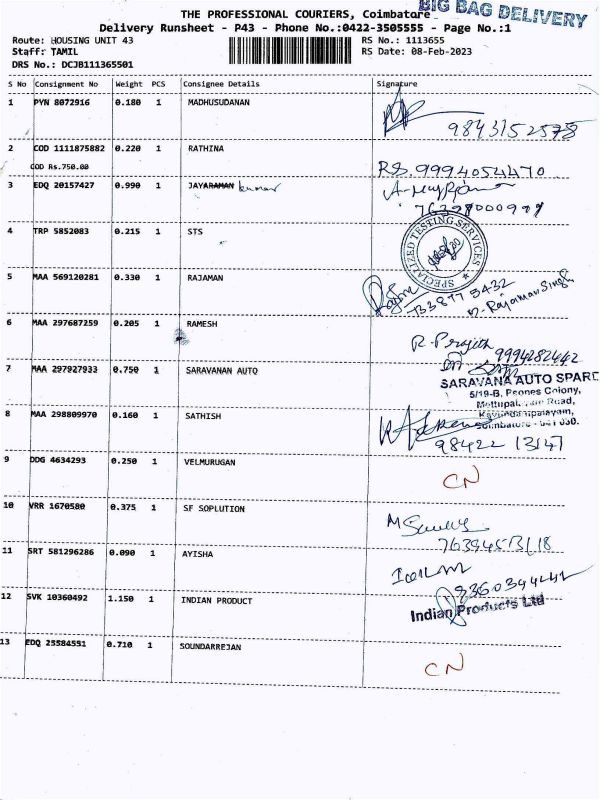 BIG BAG DELIVERY
THE PROFESSIONAL COURIERS, Coimbatore
Delivery Runsheet - P43 - Phone No.:0422-3505555 - Page No.:1
Route: HOUSING UNIT 43
RS No.: 1113655
Staff: TAMIL
RS Date: 08-Feb-2023
DRS No.: DCJB111365501
S No Consignment No Weight PCS Consignee Details Signature
1 PYN 8072916 0.180 1 MADHUSUDANAN
9843152578
2 COD 1111875882 0.220 1 RATHINA
COD Rs.750.00
RS. 9994054470
3 EDQ 20157427 0.990 1 JAYARAMAN kumar
4 TRP 5852083 0.215 1 STS
SPECIALIZED TESTING SERVICES
5 MAA 569120281 0.330 1 RAJAMAN
6 MAA 297687259 0.205 1 RAMESH
9994282442
7 MAA 297927933 0.750 1 SARAVANAN AUTO
SARAVANA AUTO SPARE
5/19-B, Peones Colony,
Road,
Kavundampalayam,
8 MAA 298809970 0.160 1 SATHISH
98422 13147
9 DDG 4634293 0.250 1 VELMURUGAN
CN
10 VRR 1670580 0.375 1 SF SOPLUTION
11 SRT 581296286 0.090 1 AYISHA
12 SVK 10360492 1.150 1 INDIAN PRODUCT
Indian Products Ltd
13 EDQ 25584551 0.710 1 SOUNDARREJAN
CN